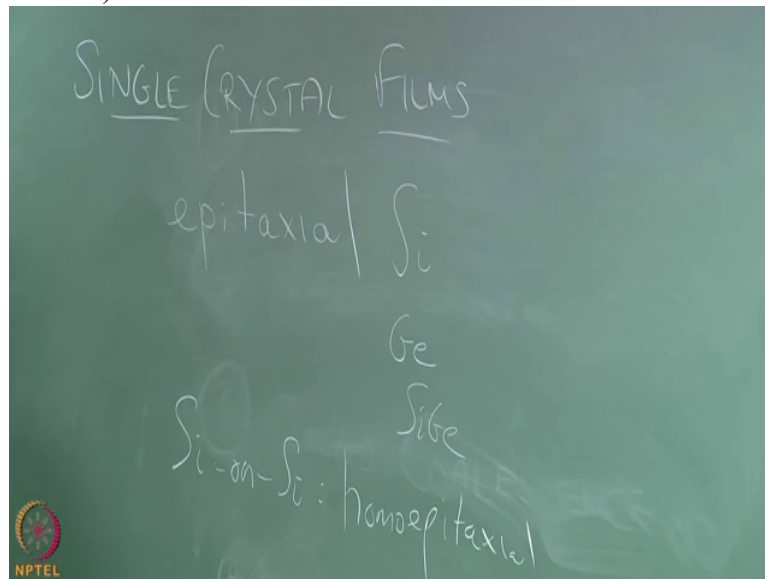 )
SINGLE CRYSTAL FILMS
epitaxial Si
Ge
SiGe
Si-on-Si: homoepitaxial
NPTEL